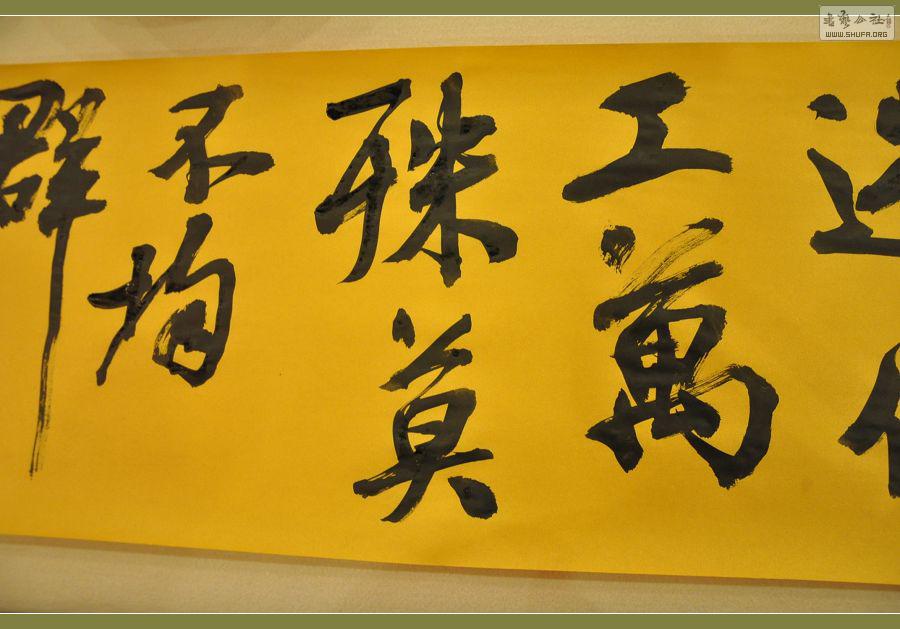 造
工萬
殊莫
不均
群
書藝公社
WWW.SHUFA.ORG